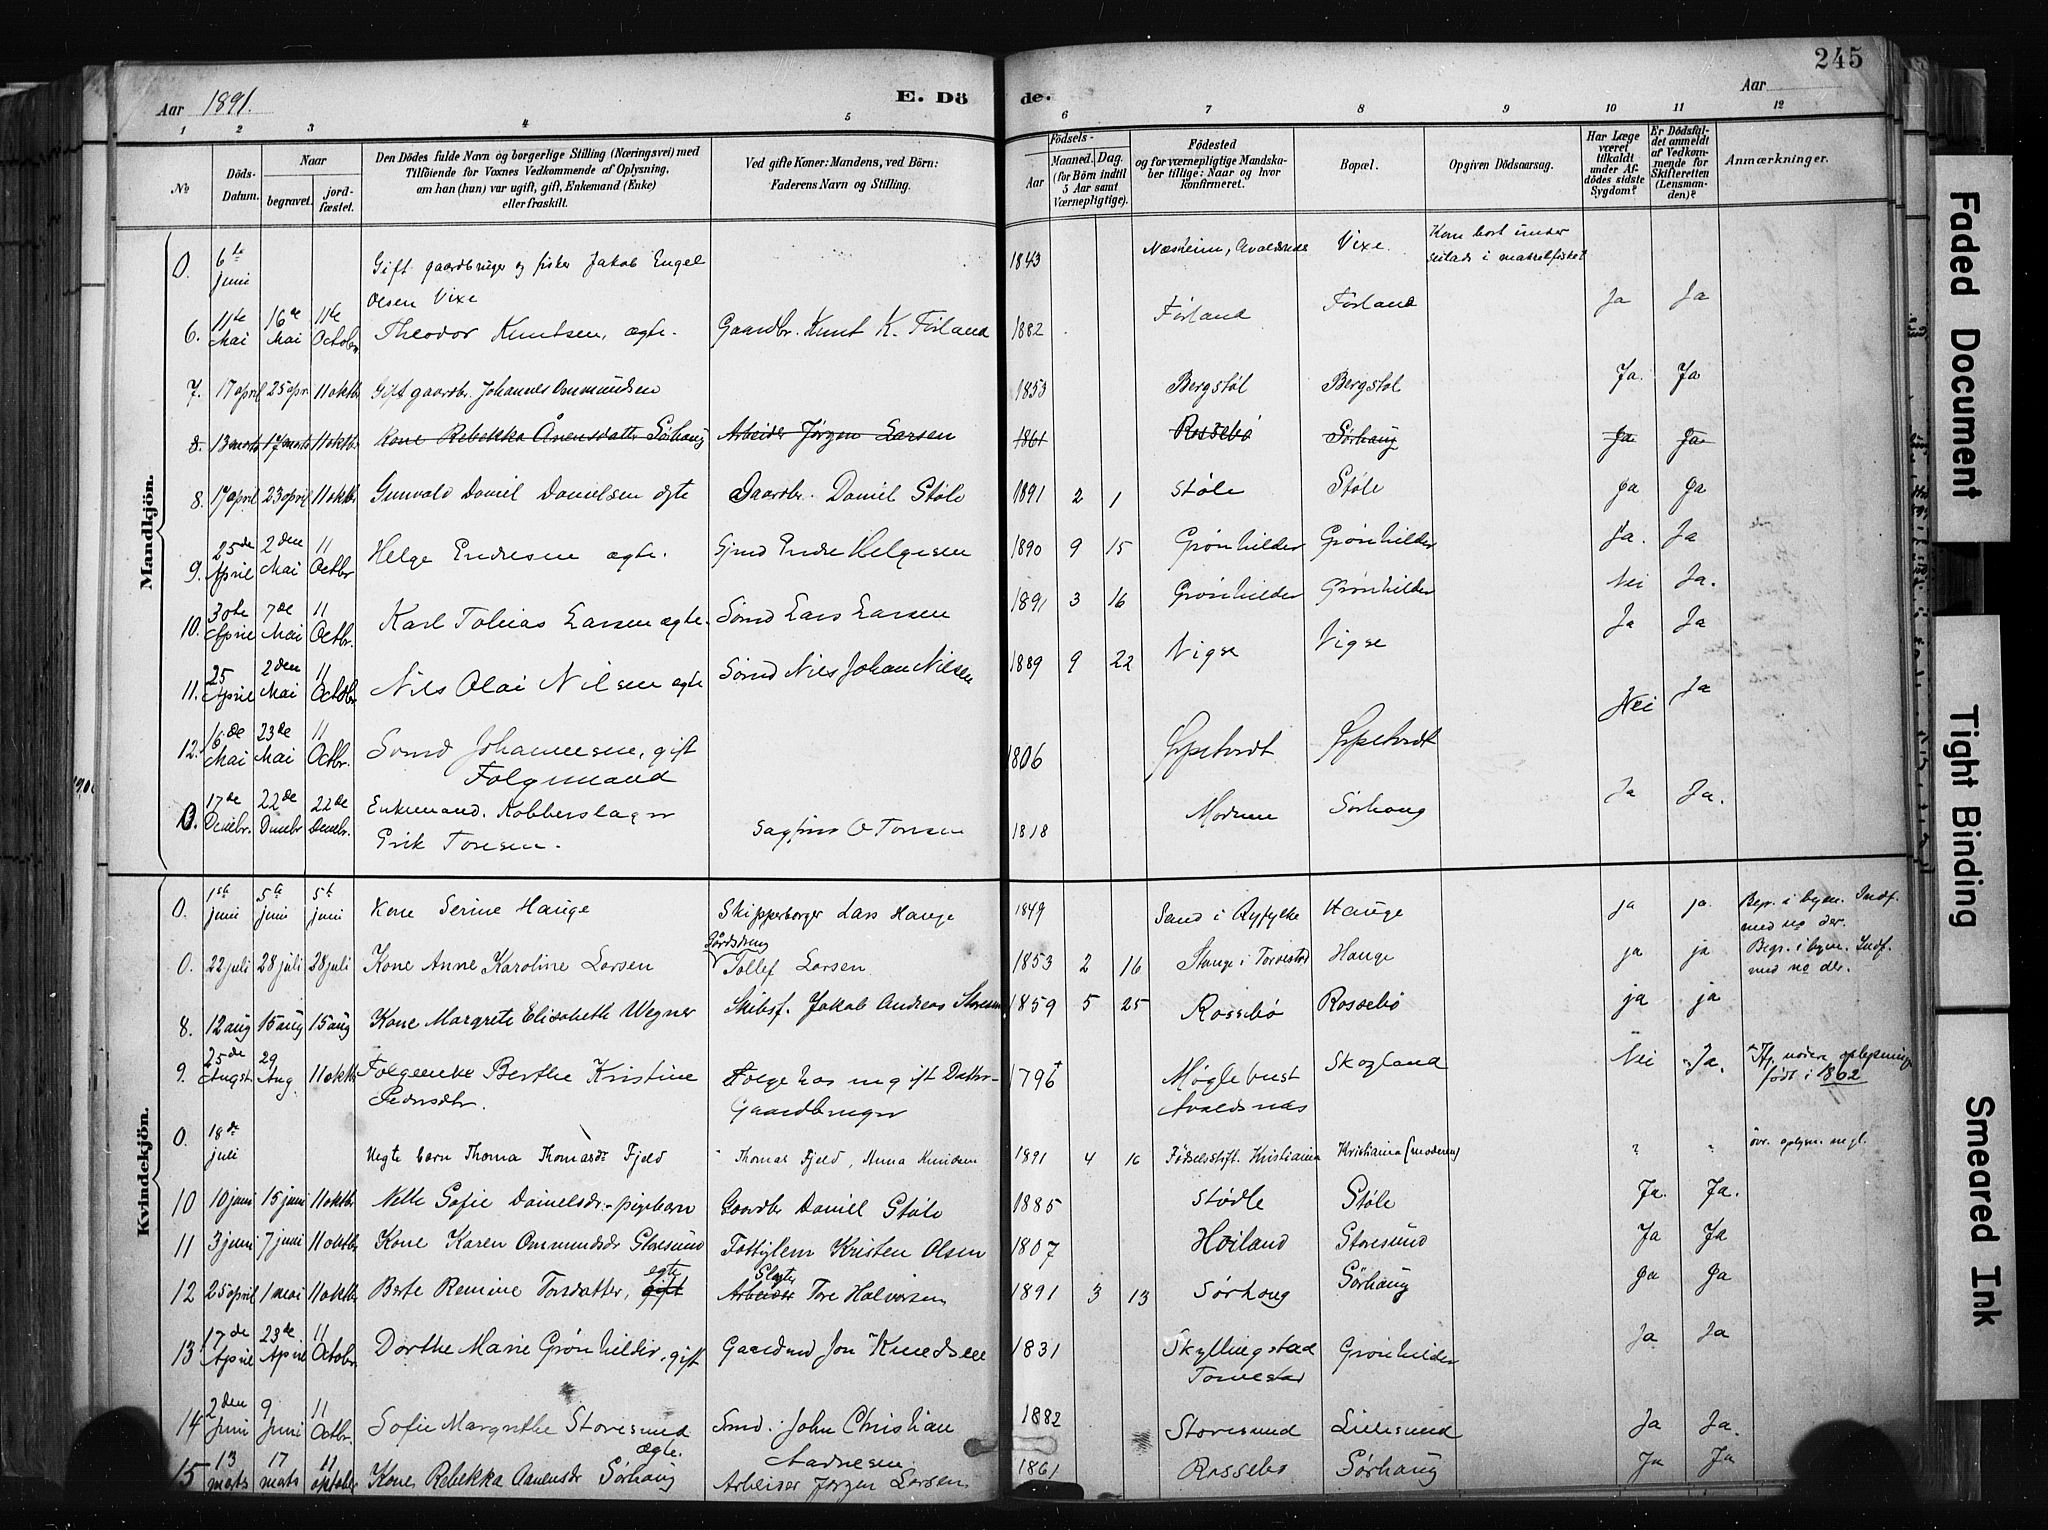 245
Aar 1891.
E. Dö
de.
Aar
1 2 3 4 5 6 7 8 9 10 11 12
No
Döds-
Datum.
Naar
begravet.
jord-
fæstet.
Den Dödes fulde Navn og borgerlige Stilling (Næringsvei) med
Tilföiende for Voxnes Vedkommende af Oplysning,
om han (hun) var ugift, gift, Enkemand (Enke)
eller fraskilt.
Ved gifte Koner: Mandens, ved Börn:
Faderens Navn og Stilling.
Födsels-
Aar
Maaned. Dag.
(for Börn indtil
5 Aar samt
Værnepligtige).
Födested
og for værnepligtige Mandska-
ber tillige: Naar og hvor
konfirmeret.
Bopæl.
Opgiven Dödsaarsag.
Har Læge
været
tilkaldt
under Af-
dödes sidste
Sygdom?
Er Dödsfal-
det anmeldt
af Vedkom-
mende for
Skifteretten
(Lensman-
den)?
Anmærkninger.
Mandkjön.
0. 6te juni Gift gaardbruger og fisker Jakob Engel Olsen Vixe 1843 Næsheim, Avaldsnes Vixe. Kom bort under seilads i makrelfisket
6. 11te Mai 16de Mai 11te Octobr Theodor Knutsen, ægte. Gaardbr. Knut K. Førland 1882 Førland Førland Ja Ja
7. 17 april 25 apr 11 oktbr Gift gaardbr. Johannes Ommundsen 1853 Bergstøl Bergstøl Ja. Ja
8. 13 marts 17 marts 11 oktbr. Kone Rebekka Ånensdatter Sørhaug Arbeider Jørgen Larsen 1861 Rossebø Sørhaug Ja Ja
8. 17 april 23 april 11 oktbr Gunvald Daniel Danielsen ægte Gaardbr. Daniel Støle 1891 2 1 Støle Støle Ja Ja
9. 25de April 2den Mai 11 Octbr Helge Endresen ægte. Gmd Endre Helgesen 1890 9 15 Grønhilder Grønhilder Ja. Ja
10. 30te April 7de Mai 11 Octbr. Karl Tobias Larsen ægte. Sømd Lars Larsen 1891 3 16 Grønhilder Grønhilder Nei Ja.
11. 25 April 2den Mai 11 Octobr Nils Olai Nilsen ægte Sømd Nils Johan Nilsen 1889 9 22 Vigse Vigse Ja Ja
12. 16de Mai 23de Mai 11 Octbr. Johannesen, gift Folgemand 1806 Nei Ja
0. 17de Decbr. 22de 22de Decbr. Enkemand. Kobberslager Erik Toresen. 1818 Modum Sørhaug Ja Ja.
Kvindekjön.
0. 1ste juni 5te juni 5te juni Kone Serine Hauge Skipperborger Lars Hauge 1849 Sand i Ryfylke Hauge ja ja. Begr. i byen. Indf. med no der.
0. 22 juli 28 juli 28 juli Kone Anne Karoline Larsen Gårdsdreng Tollef Larsen 1853 2 16 Hauge i Torvestad Hauge ja ja Begr. i byen. Indf. med no der.
8. 12 aug 15 aug 15 aug Kone Margrete Elisabeth Wegner Skibsf. Jakob Andreas 1859 5 25 Rossebø Rossebø ja ja
9. 25de Augst 29 Aug. 11 oktbr Folgeenke Berthe Kristine Pedersdtr. Folge hos en gift Datter- Gaardbruger 1796 Møglebust Avaldsnæs Skogland Nei Ja. født i 1802
0. 18de juli Uegte barn Thoma Thomasdr Fjeld Thomas Fjeld, Anna Knudsen 1891 4 16 Fødselsstift. Kristiania Kristiania (moderen) " " øvr. oplysn. mgl.
10 10 juni 15 juni 11 oktbr Nelle Sofie Danielsdr.- pigebarn Gaardbr Daniel Støle 1885 Stødle Støle Ja. Ja.
11 3 juni 7 juni 11 oktbr Kone Karen Ommundsdr Storesund Fattiglem Kristen Olsen 1807 Høiland Storesund Ja Ja
12 25 april 1 mai 11 oktbr Berte Remine Torsdatter, gift egte Arbeider Slagter Tore Halvorsen 1891 3 13 Sørhaug Sørhaug Ja Ja
13 17de April 23de April 11 Octobr Dorthe Marie Grønhilder, gift Gaardmd Jon Knudsen 1831 Skyllingstad Torvestad Grønhilder Ja Ja
14 2den Juni 9 Juni 11 Octbr. Sofie Margrethe Storesund ægte. Smd. John Christian Aadnesen 1882 Storesund Lillesund Ja Ja.
15 13 marts 17 marts 11 oktober Kone Rebekka Aanensdr Sørhaug Arbeider Jørgen Larsen 1861 Rossebø Sørhaug Ja Ja
Faded Document
Tight Binding
Smeared Ink